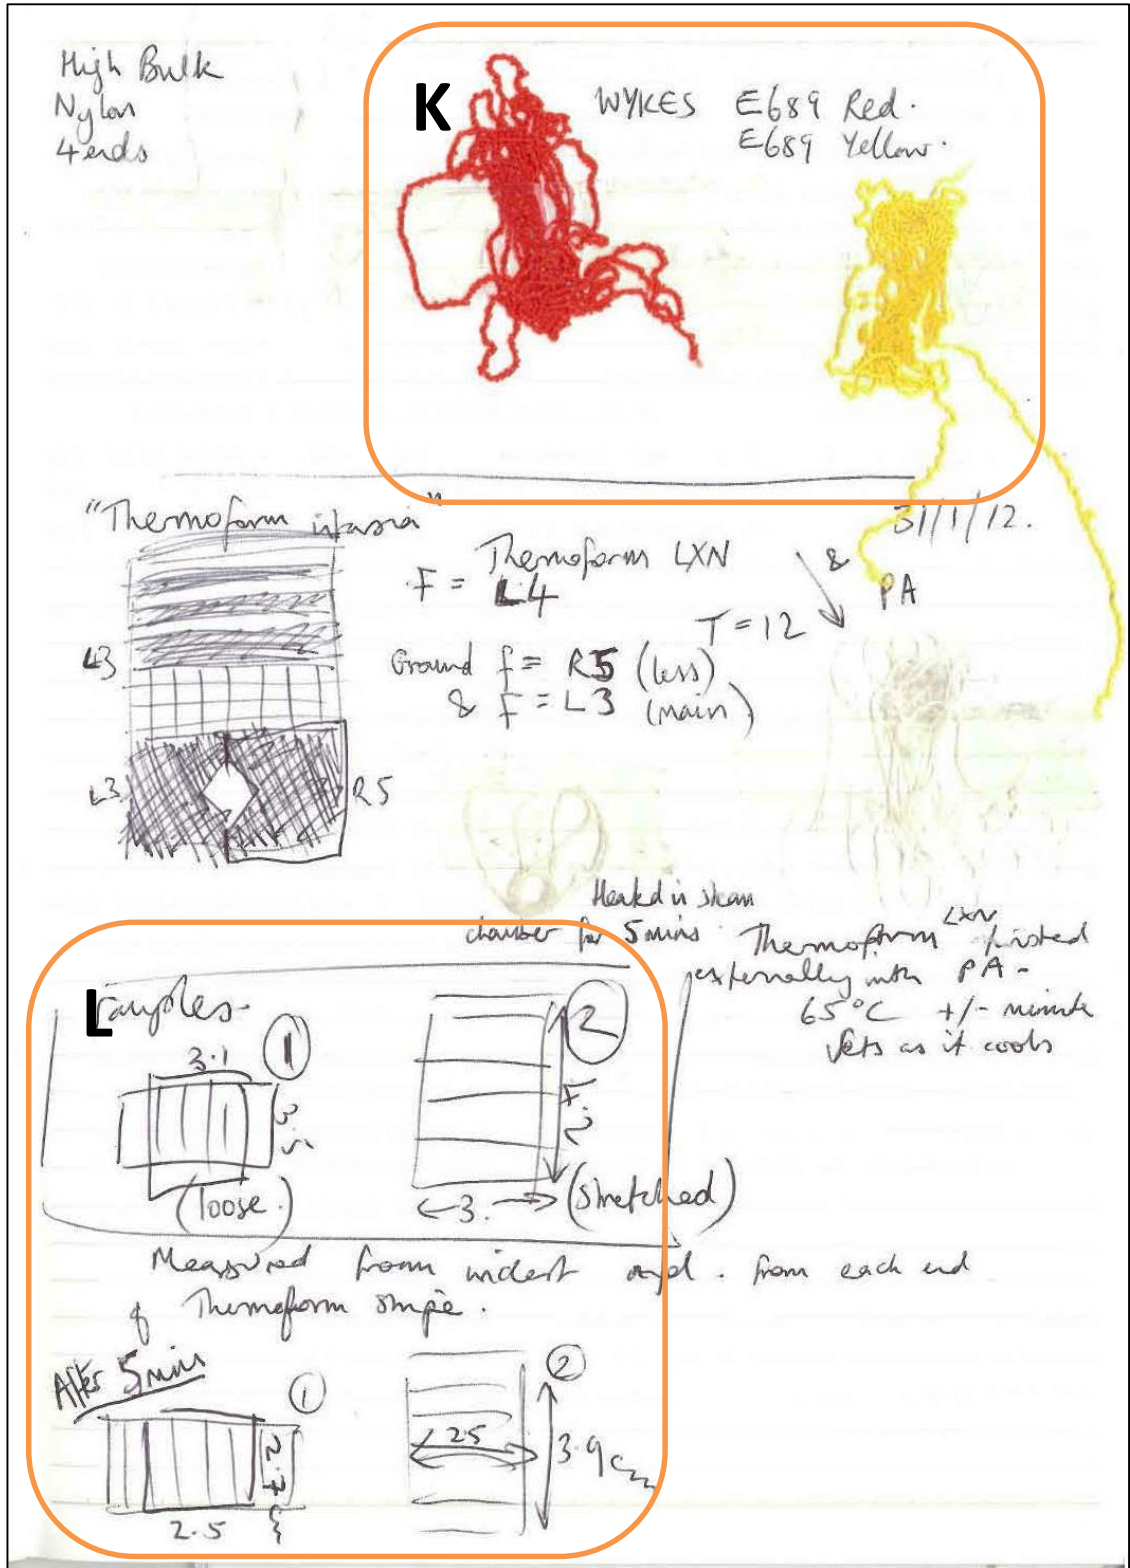 High Bulk
Nylon
4 ends
K
WYKES E689 Red.
E689 Yellow.
"Thermoform intarsia"
31/1/12.
Thermoform LXN
&
PA
F = L4
T = 12
Ground f = R5 (less)
& F = L3 (main)
L3
L3
R5
Heated in steam
chamber for 5 mins.
Thermoform LXN finished
externally with PA -
65°C +/- minute
Sets as it cools
L
Samples.
3.1
1
2
(loose.)
←3.→
(stretched)
Measured from widest from each end
of Thermoform stripe.
After 5 mins
1
2
2.5
3.9cm
2.7
2.5